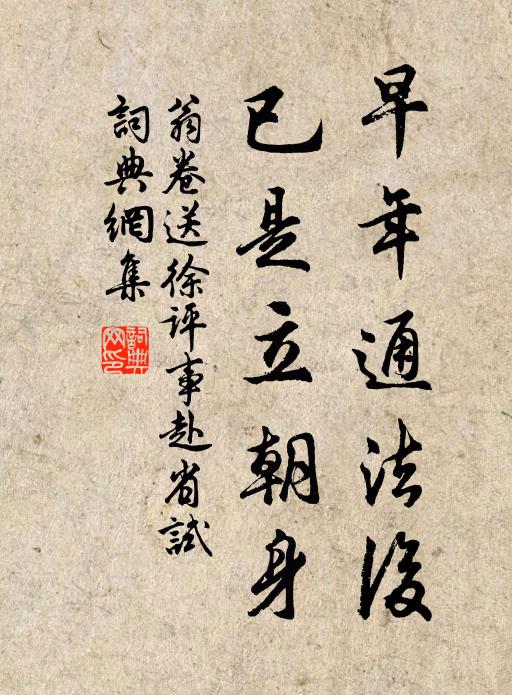 早年通法後
已是立朝身
翁卷送徐評事赴省試
詞典網集
詞典网印